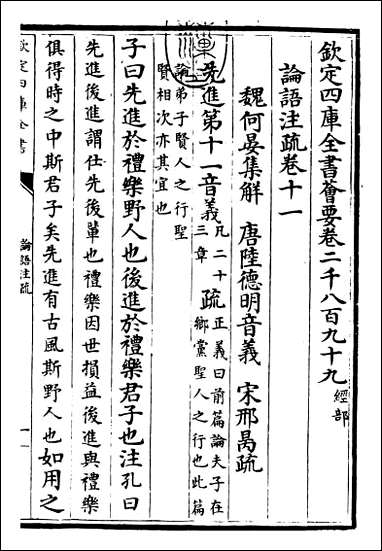 欽定四庫全書薈要卷二千八百九十九經部
論語注疏卷十一
魏何晏集解 唐陸德明音義 宋邢昺疏
先進第十一音義凡二十三章疏正義曰前篇論夫子在鄉黨聖人之行也此篇
論弟子賢人之行聖賢相次亦其宜也
子曰先進於禮樂野人也後進於禮樂君子也注孔曰
先進後進謂仕先後輩也禮樂因世損益後進與禮樂
俱得時之中斯君子矣先進有古風斯野人也如用之
欽定四庫全書
論語注疏
一